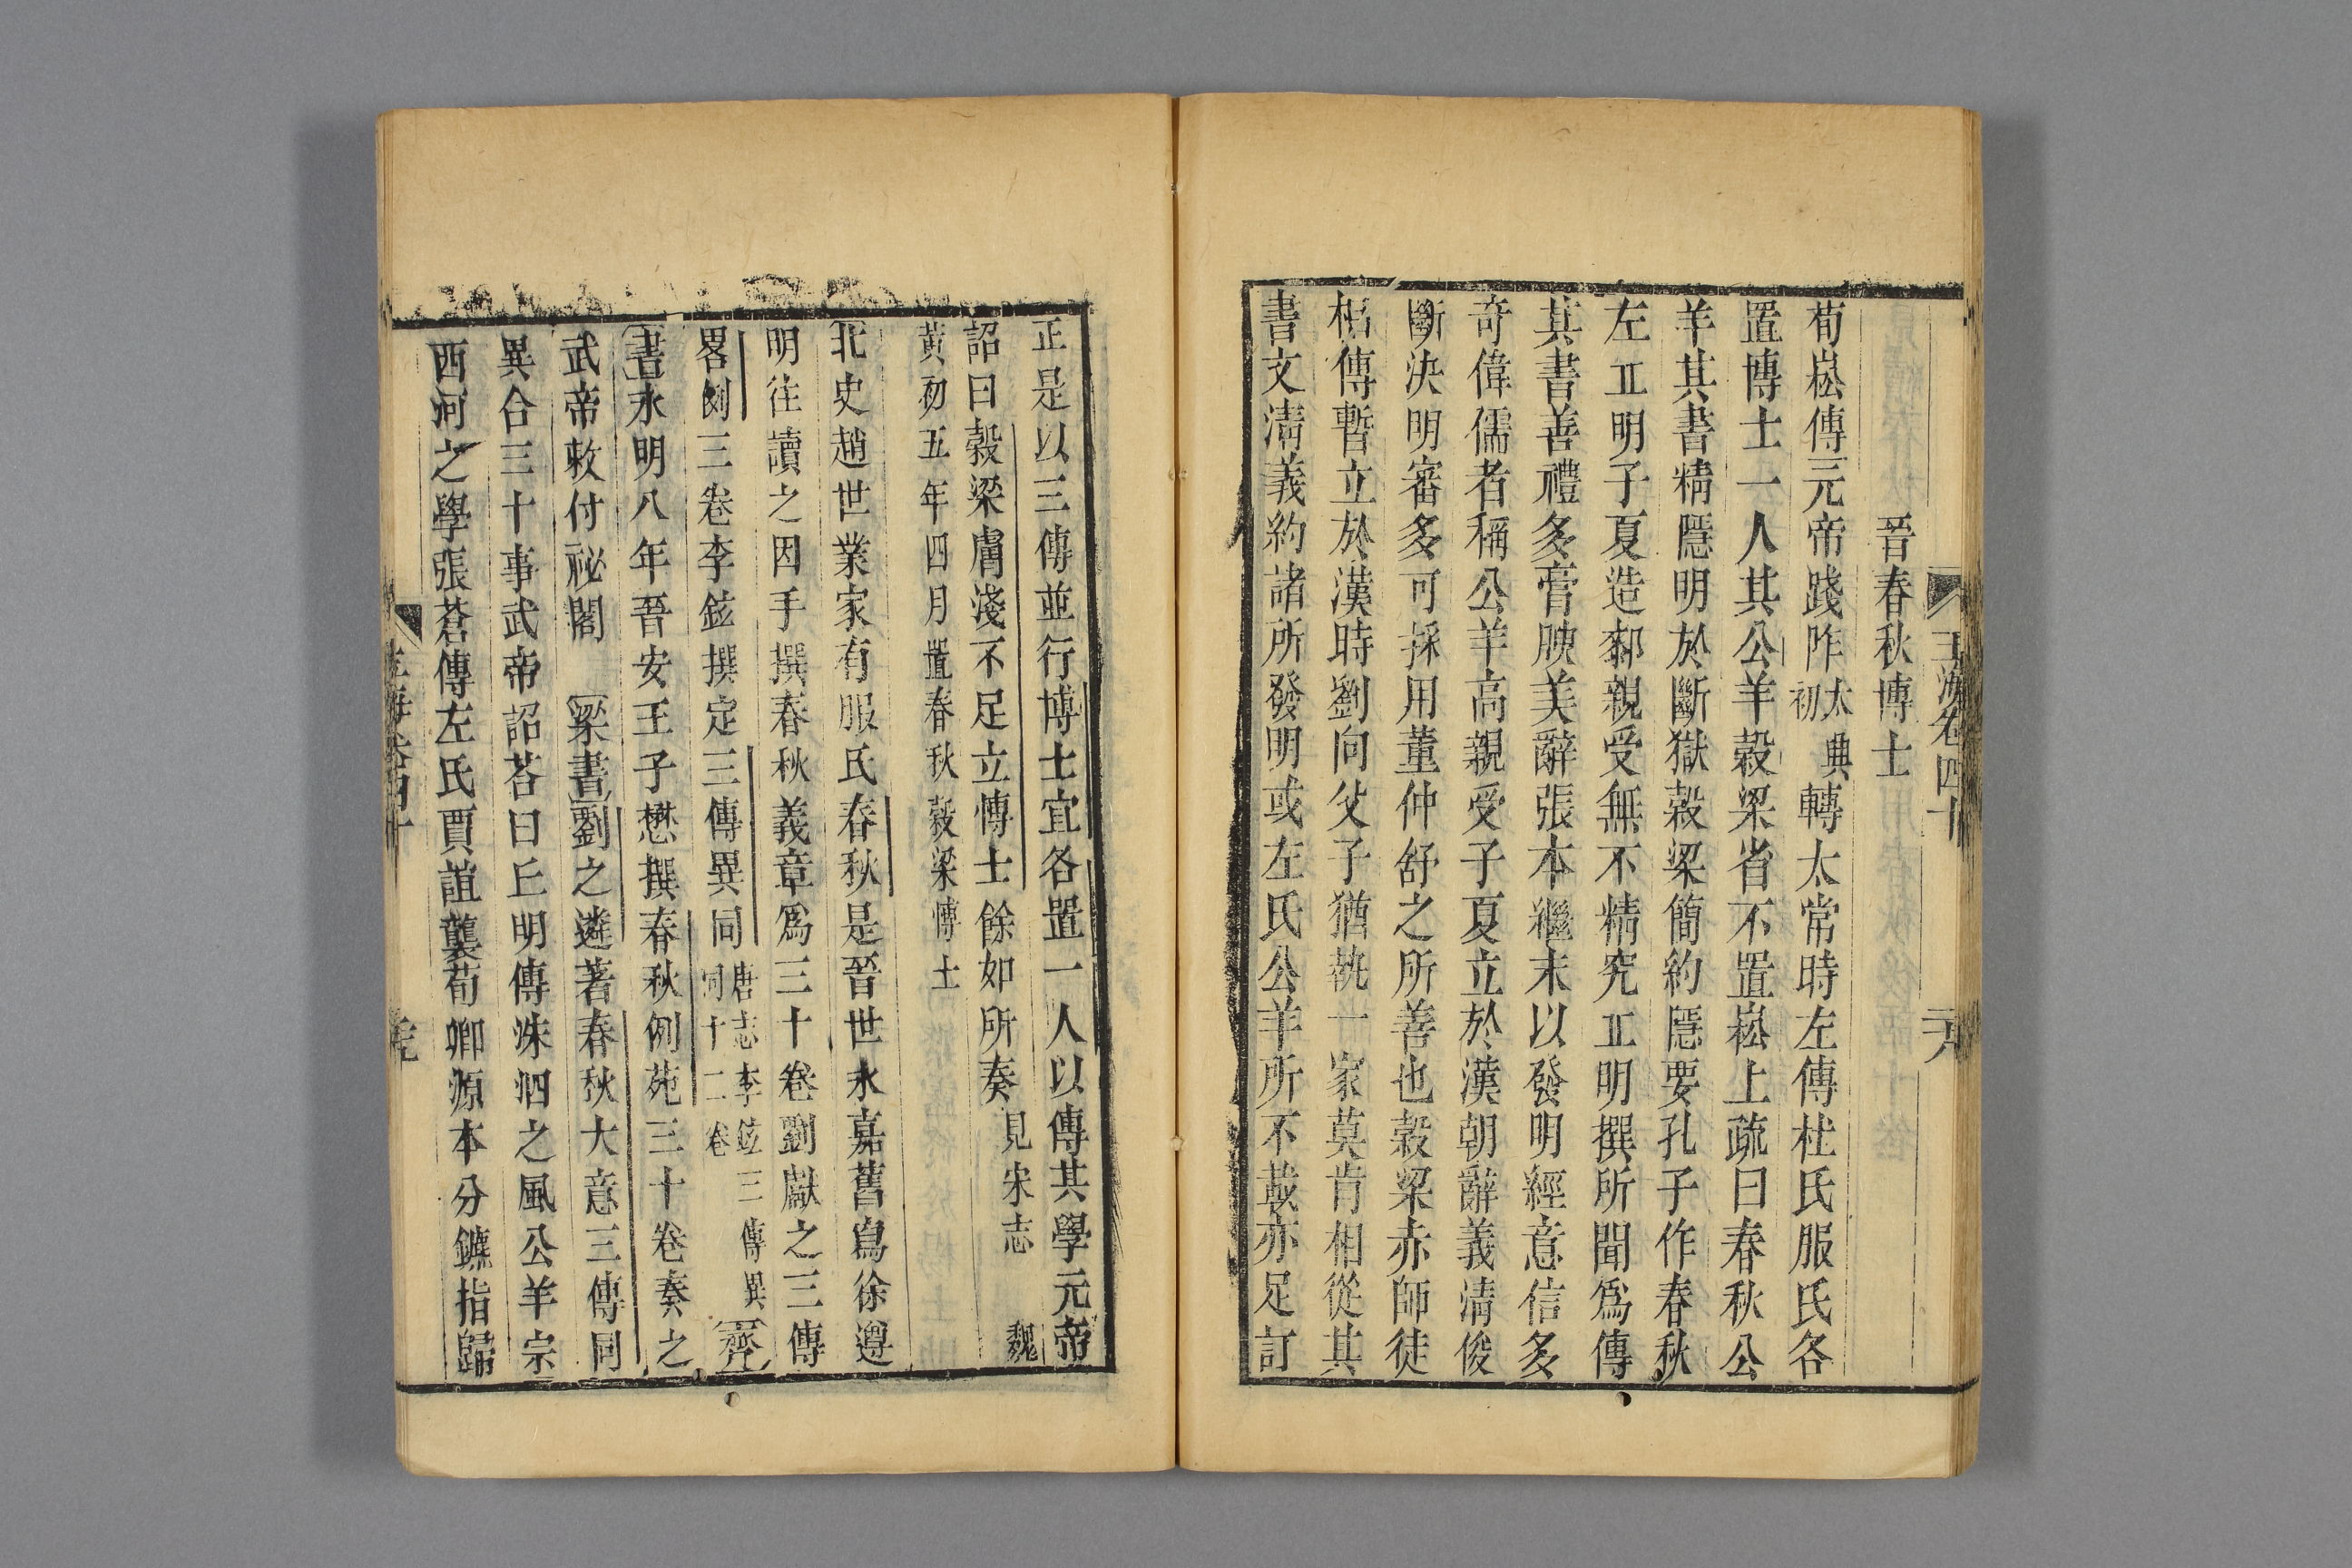 玉海卷四十 六
晉春秋博士
荀崧傳元帝踐阼太興初轉太常時左傳杜氏服氏各
置博士一人其公羊穀梁省不置崧上疏曰春秋公
羊其書精隱明於斷獄穀梁簡約隱要孔子作春秋
左丘明子夏造郰親受無不精究丘明撰所聞爲傳
其書善禮多膏腴美辭張本繼末以發明經意信多
奇偉儒者稱公羊高親受子夏立於漢朝辭義清俊
斷決明審多可採用董仲舒之所善也穀梁赤師徒
相傳暫立於漢時劉向父子猶執一家莫肯相從其
書文清義約諸所發明或左氏公羊所不載亦足訂
正是以三傳並行博士宜各置一人以傳其學元帝
詔曰穀梁膚淺不足立博士餘如所奏見宋志 魏
黃初五年四月置春秋穀梁博士
北史趙世業家有服氏春秋是晉世永嘉舊寫徐遵
明往讀之因手撰春秋義章爲三十卷劉獻之三傳
畧例三卷李鉉撰定三傳異同唐志李鉉三傳異同十二卷 齊
書永明八年晉安王子懋撰春秋例苑三十卷奏之
武帝敕付祕閣 梁書劉之遴著春秋大意三傳同
異合三十事武帝詔荅曰丘明傳洙泗之風公羊宗
西河之學張蒼傳左氏賈誼襲荀卿源本分鑣指歸